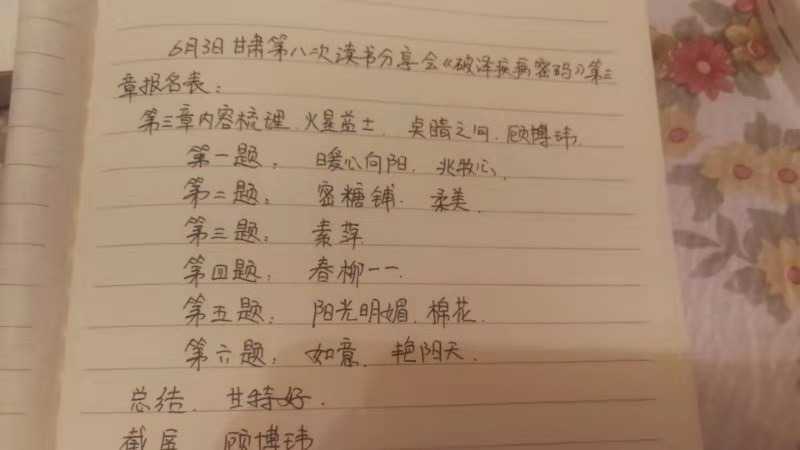 6月3日甘肃第八次读书分享会《破译疾病密码》第三
章报名表:
第三章内容梳理.火星益士. 点睛之间.顾博玮.
第一题. 暖心向阳.
第二题: 密糖铺. 柔美.
第三题: 素萍
第四题: 春柳一一.
第五题: 阳光明媚.棉花.
第六题: 如意. 艳阳天.
总结. 甘特好.
截屏 顾博玮